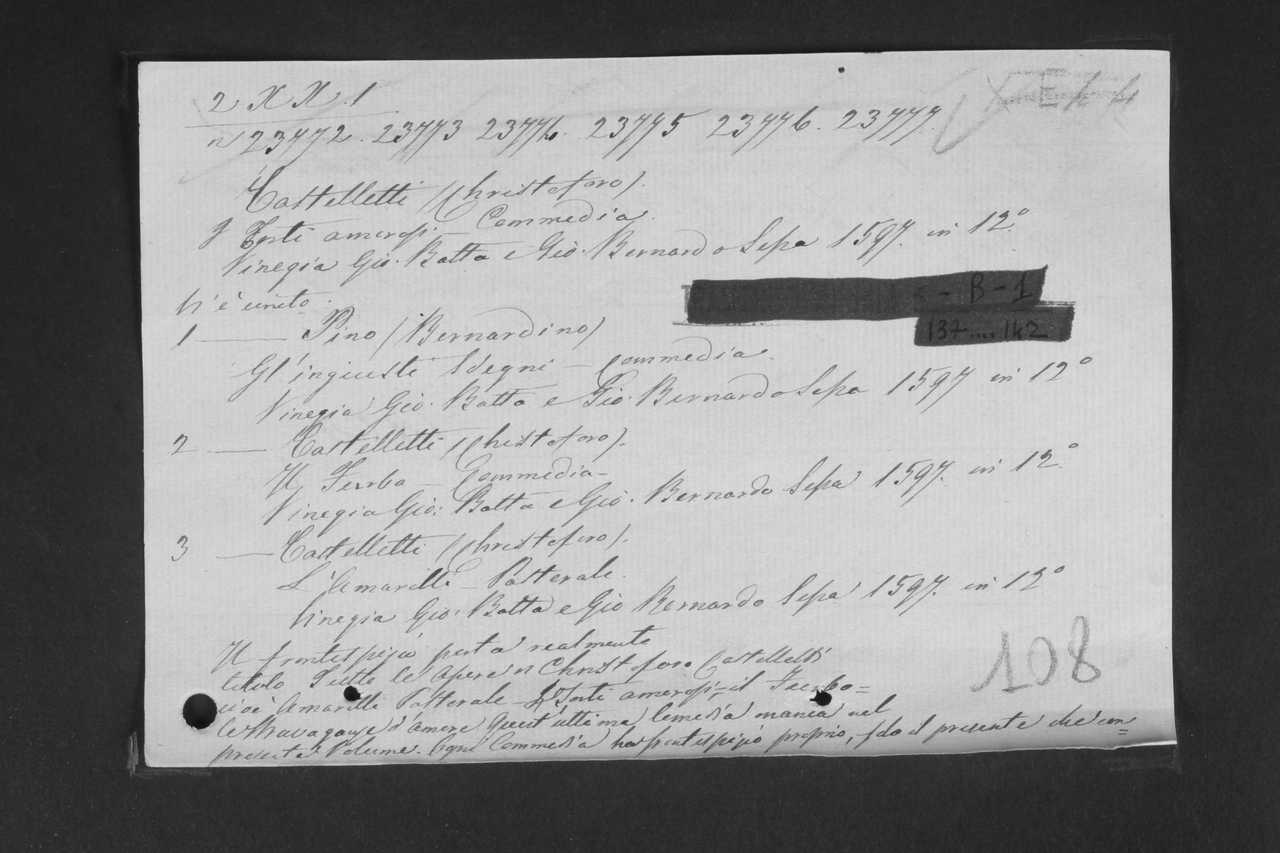 2 X X .1
n 23772 . 23773 23774 . 23775 23776 . 23777.
E
Castelletti (Christoforo).
I Torti amorosi – Commedia.
Vinegia Gio. Batta e Gio. Bernardo Sessa 1597. in 12°
V'è unito.
B - 1
137....142
1 — Pino (Bernardino)
Gl'ingiusti Sdegni – Commedia.
Vinegia Gio. Batta e Gio. Bernardo Sessa 1597 in 12°
2 — Castelletti (Christoforo).
Il Furbo – Commedia –
Vinegia Gio: Batta e Gio. Bernardo Sessa 1597. in 12°
3 — Castelletti (Christoforo).
L'Amarilli – Pastorale.
Vinegia Gio: Batta e Gio Bernardo Sessa 1597. in 12°
Il frontespizio porta realmente
titolo Tutte le Opere di Christoforo Castelletti
cioè Amarilli Pastorale – I Torti amorosi – il Furbo =
le stravaganze d'amore Quest'ultima Comedia manca nel
presente Volume. Ogni Commedia ha frontespizio proprio, il presente che con=
108